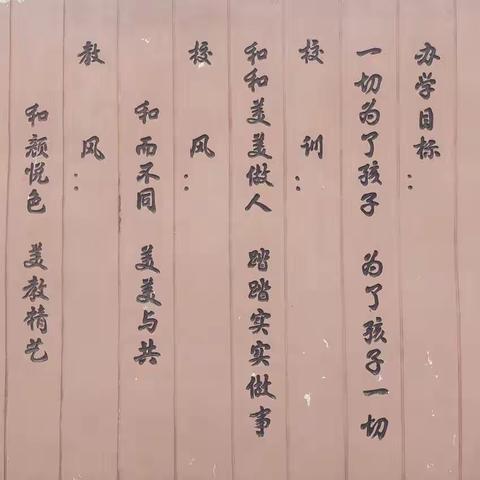 办学目标：
一切为了孩子 为了孩子一切
校训：
和和美美做人 踏踏实实做事
校风：
和而不同 美美与共
教风：
和颜悦色 美教精艺